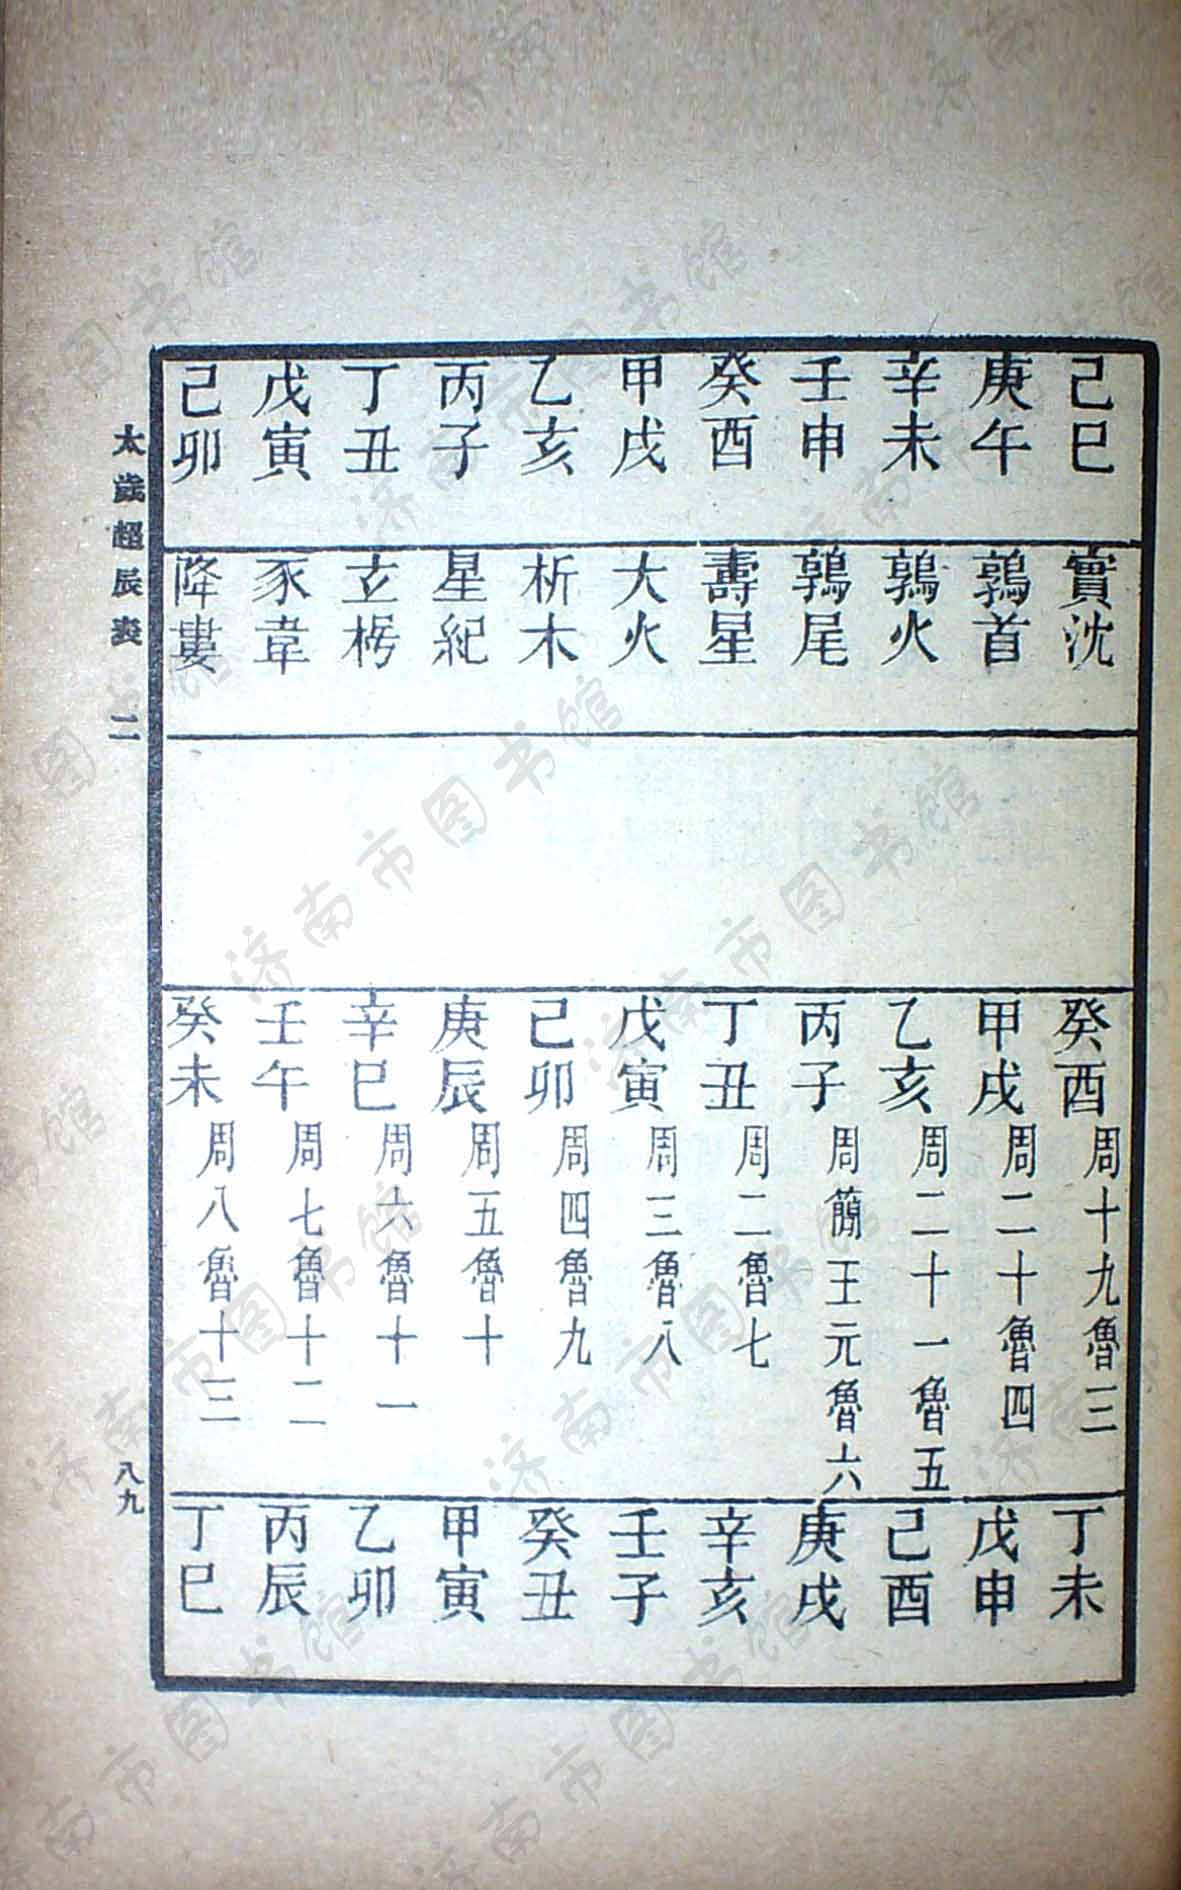 己巳 實沈 癸酉周十九魯三 丁未
庚午 鶉首 甲戌周二十魯四 戊申
辛未 鶉火 乙亥周二十一魯五 己酉
壬申 鶉尾 丙子周簡王元魯六 庚戌
癸酉 壽星 丁丑周二魯七 辛亥
甲戌 大火 戊寅周三魯八 壬子
乙亥 析木 己卯周四魯九 癸丑
丙子 星紀 庚辰周五魯十 甲寅
丁丑 玄枵 辛巳周六魯十一 乙卯
戊寅 豕韋 壬午周七魯十二 丙辰
己卯 降婁 癸未周八魯十三 丁巳
太歲超辰表 二 八九
济南市图书馆